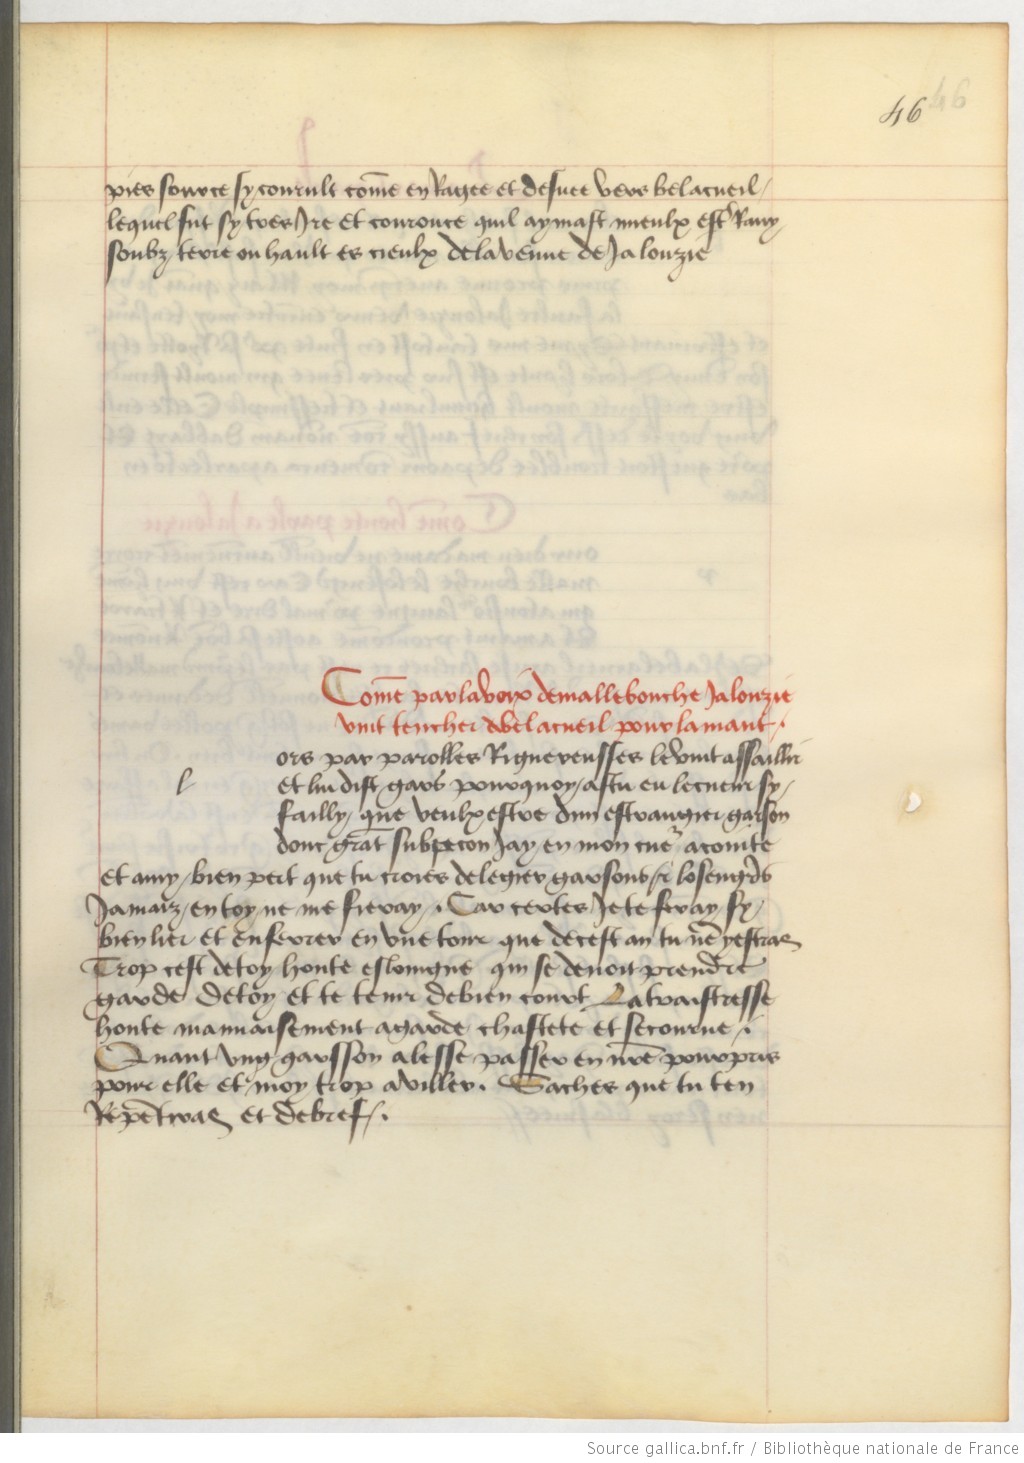 46 46
pies source sy courult com̄e enRagee et desuee vers bel acueil /
lequel fut sy tres Jre et couronce quil aymast mieulx estr̄ Rauy
soubz terre ou hault es cieulx de la venue de Jalouzie
Com̄e par la voix de malle bouche Jalouzie
vint tencher a bel acueil pour lamant .
l
ors par parolles Riguereusses le vint assaillir
et lui dist gars pourquoy / as tu eu le cueur sy /
failly / que veulx estre dun estrangier garson
donc grāt subpecon Jay en mon cue᷑ acointe
et amy / bien pert que tu croies de legier garsons losengrs
Jamaiz / en toy ne me fieray /. Car certes Je te feray sy /
bien lier et enferrer en vne tour que de cest an tu nē ystras
Trop cest de toy honte esloingne qui se deuoit prendre
garde de toy et te tenir de bien court La traistresse
honte mauuaisement a garde chastete et secourue /.
Quant vng garsson a lesse passer en nr̄e pourpris
pour elle et moy trop auiller . Saches que tu ten
Repētiras et de bref /.
Source gallica.bnf.fr / Bibliothèque nationale de France